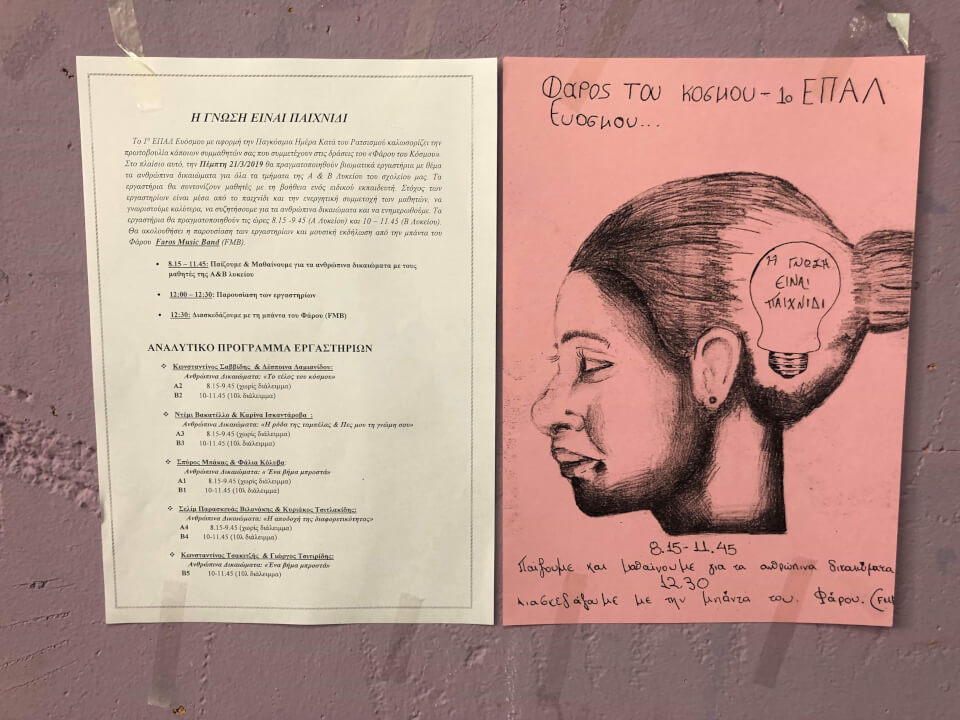 Η ΓΝΩΣΗ ΕΙΝΑΙ ΠΑΙΧΝΙΔΙ
Το 1ο ΕΠΑΛ Ευόσμου με αφορμή την Παγκόσμια Ημέρα Κατά του Ρατσισμού καλωσορίζει την
πρωτοβουλία κάποιων συμμαθητών σας που συμμετέχουν στις δράσεις του «Φάρου του Κόσμου».
Στο πλαίσιο αυτό, την Πέμπτη 21/3/2019 θα πραγματοποιηθούν βιωματικά εργαστήρια με θέμα
τα ανθρώπινα δικαιώματα για όλα τα τμήματα της Α & Β Λυκείου του σχολείου μας. Τα
εργαστήρια θα συντονίζουν μαθητές με τη βοήθεια ενός ειδικού εκπαιδευτή. Στόχος των
εργαστηρίων είναι μέσα από το παιχνίδι και την ενεργητική συμμετοχή των μαθητών, να
γνωριστούμε καλύτερα, να συζητήσουμε για τα ανθρώπινα δικαιώματα και να ενημερωθούμε. Τα
εργαστήρια θα πραγματοποιηθούν τις ώρες 8.15 -9.45 (Α Λυκείου) και 10 – 11.45 (Β Λυκείου).
Θα ακολουθήσει η παρουσίαση των εργαστηρίων και μουσική εκδήλωση από την μπάντα του
Φάρου Faros Music Band (FMB).
• 8.15 – 11.45: Παίζουμε & Μαθαίνουμε για τα ανθρώπινα δικαιώματα με τους
μαθητές της Α&Β λυκείου
• 12:00 – 12:30: Παρουσίαση των εργαστηρίων
• 12:30: Διασκεδάζουμε με τη μπάντα του Φάρου (FMB)
ΑΝΑΛΥΤΙΚΟ ΠΡΟΓΡΑΜΜΑ ΕΡΓΑΣΤΗΡΙΩΝ
❖ Κωνσταντίνος Σαββίδης & Δέσποινα Δαμιανίδου:
Ανθρώπινα Δικαιώματα: «Το τέλος του κόσμου»
Α2 8.15-9.45 (χωρίς διάλειμμα)
Β2 10-11.45 (10λ διάλειμμα)
❖ Ντέμι Βακατέλλο & Καρίνα Ισκαντάροβα :
Ανθρώπινα Δικαιώματα: «Η ρόδα της ταμπέλας & Πες μου τη γνώμη σου»
Α3 8.15-9.45 (χωρίς διάλειμμα)
Β3 10-11.45 (10λ διάλειμμα)
❖ Σπύρος Μπάκας & Φάλια Κόλυβα:
Ανθρώπινα Δικαιώματα: « Ένα βήμα μπροστά»
Α1 8.15-9.45 (χωρίς διάλειμμα)
Β1 10-11.45 (10λ διάλειμμα)
❖ Σελίμ Παρασκευάς Βιλανάκης & Κυριάκος Τσιτλακίδης:
Ανθρώπινα Δικαιώματα: «Η αποδοχή της διαφορετικότητας»
Α4 8.15-9.45 (χωρίς διάλειμμα)
Β4 10-11.45 (10λ διάλειμμα)
❖ Κωνσταντίνος Τσακιτζής & Γιώργος Τσιτιρίδης:
Ανθρώπινα Δικαιώματα: «Ένα βήμα μπροστά»
Β5 10-11.45 (10λ διάλειμμα)
Φαρος του κοσμου - 1ο ΕΠΑΛ
Ευοσμου...
Η ΓΝΩΣΗ
ΕΙΝΑΙ
ΠΑΙΧΝΙΔΙ
8.15-11.45
Παίζουμε και μαθαίνουμε για τα ανθρώπινα δικαιώματα
12.30
Διασκεδάζουμε με την μπάντα του. Φάρου. (FMB